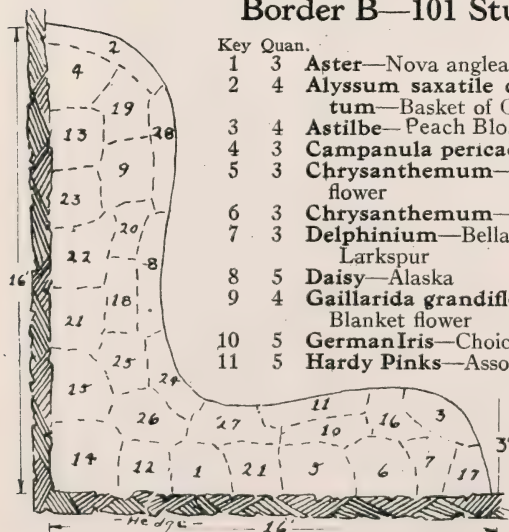 Border B—101 Stu
Key Quan.
1 3 Aster—Nova anglea
2 4 Alyssum saxatile c
tum—Basket of G
3 4 Astilbe—Peach Blo
4 3 Campanula perica
5 3 Chrysanthemum—
flower
6 3 Chrysanthemum—
7 3 Delphinium—Bella
Larkspur
8 5 Daisy—Alaska
9 4 Gaillarida grandifl
Blanket flower
10 5 German Iris—Choic
11 5 Hardy Pinks—Asso
2
4
19
13
28
9
23
20
22
8
16'
18
21
25
24
15
11
26
27
10
16
3
3'
14
12
1
21
5
6
7
17
-Hedge-
16'